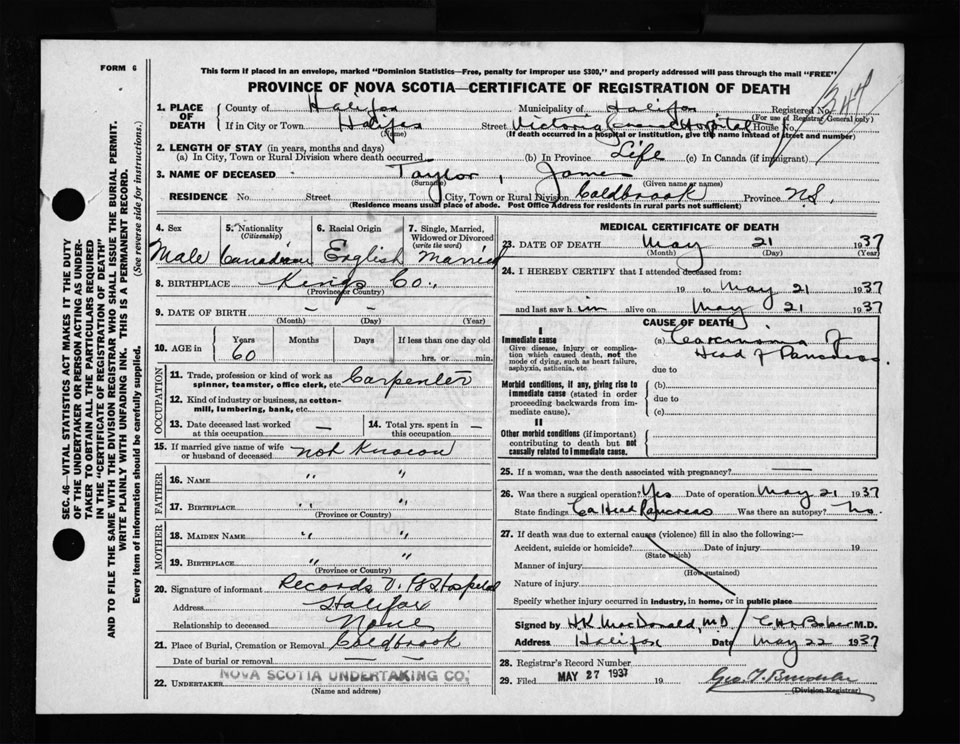 FORM 6
This form if placed in an envelope, marked "Dominion Statistics—Free, penalty for improper use $300," and properly addressed will pass through the mail "FREE"
PROVINCE OF NOVA SCOTIA—CERTIFICATE OF REGISTRATION OF DEATH
1. PLACE OF DEATH
County of Halifax Municipality of Halifax Registered No. 347
(For use of Registrar General only)
If in City or Town Halifax Street Victoria General Hospital House No.
(Name) (If death occurred in a hospital or institution, give the name instead of street and number)
2. LENGTH OF STAY (in years, months and days)
(a) In City, Town or Rural Division where death occurred (b) In Province Life (c) In Canada (if immigrant)
3. NAME OF DECEASED Taylor, James
(Surname) (Given name or names)
RESIDENCE No. Street City, Town or Rural Division Coldbrook Province N.S.
(Residence means usual place of abode. Post Office Address for residents in rural parts not sufficient)
4. Sex 5. Nationality (Citizenship) 6. Racial Origin 7. Single, Married, Widowed or Divorced (write the word)
Male Canadian English Married
8. BIRTHPLACE Kings Co.,
(Province or Country)
9. DATE OF BIRTH — —
(Month) (Day) (Year)
10. AGE in Years Months Days If less than one day old
60 hrs. or min.
OCCUPATION
11. Trade, profession or kind of work as spinner, teamster, office clerk, etc. Carpenter
12. Kind of industry or business, as cotton-mill, lumbering, bank, etc.
13. Date deceased last worked at this occupation — 14. Total yrs. spent in this occupation —
15. If married give name of wife or husband of deceased not known
FATHER
16. NAME " "
17. BIRTHPLACE " "
(Province or Country)
MOTHER
18. MAIDEN NAME " "
19. BIRTHPLACE " "
(Province or Country)
20. Signature of informant Records V. G. Hospital
Address Halifax
Relationship to deceased None
21. Place of Burial, Cremation or Removal Coldbrook
Date of burial or removal —
22. UNDERTAKER NOVA SCOTIA UNDERTAKING CO.
(Name and address)
MEDICAL CERTIFICATE OF DEATH
23. DATE OF DEATH May 21 1937
(Month) (Day) (Year)
24. I HEREBY CERTIFY that I attended deceased from:
19 to May 21 1937
and last saw him alive on May 21 1937
CAUSE OF DEATH
I
Immediate cause
Give disease, injury or complication which caused death, not the mode of dying, such as heart failure, asphyxia, asthenia, etc
(a) Carcinoma of
Head of Pancreas
due to
Morbid conditions, if any, giving rise to immediate cause (stated in order proceeding backwards from immediate cause).
(b)
due to
(c)
II
Other morbid conditions (if important) contributing to death but not causally related to immediate cause.
25. If a woman, was the death associated with pregnancy?
26. Was there a surgical operation? Yes Date of operation May 21 1937
State findings Ca Head Pancreas Was there an autopsy? No.
27. If death was due to external causes (violence) fill in also the following:—
Accident, suicide or homicide? Date of injury 19
(State which)
Manner of injury
(How sustained)
Nature of injury
Specify whether injury occurred in industry, in home, or in public place
Signed by H.K. MacDonald, M.D. / M.D.
Address Halifax Date May 22 1937
28. Registrar's Record Number
29. Filed MAY 27 1937 19
(Division Registrar)
SEC. 46—VITAL STATISTICS ACT MAKES IT THE DUTY
OF THE UNDERTAKER OR PERSON ACTING AS UNDER-
TAKER TO OBTAIN ALL THE PARTICULARS REQUIRED
IN THE "CERTIFICATE OF REGISTRATION OF DEATH"
AND TO FILE THE SAME WITH THE DIVISION REGISTRAR WHO SHALL ISSUE THE BURIAL PERMIT.
WRITE PLAINLY WITH UNFADING INK. THIS IS A PERMANENT RECORD.
Every item of information should be carefully supplied. (See reverse side for instructions.)